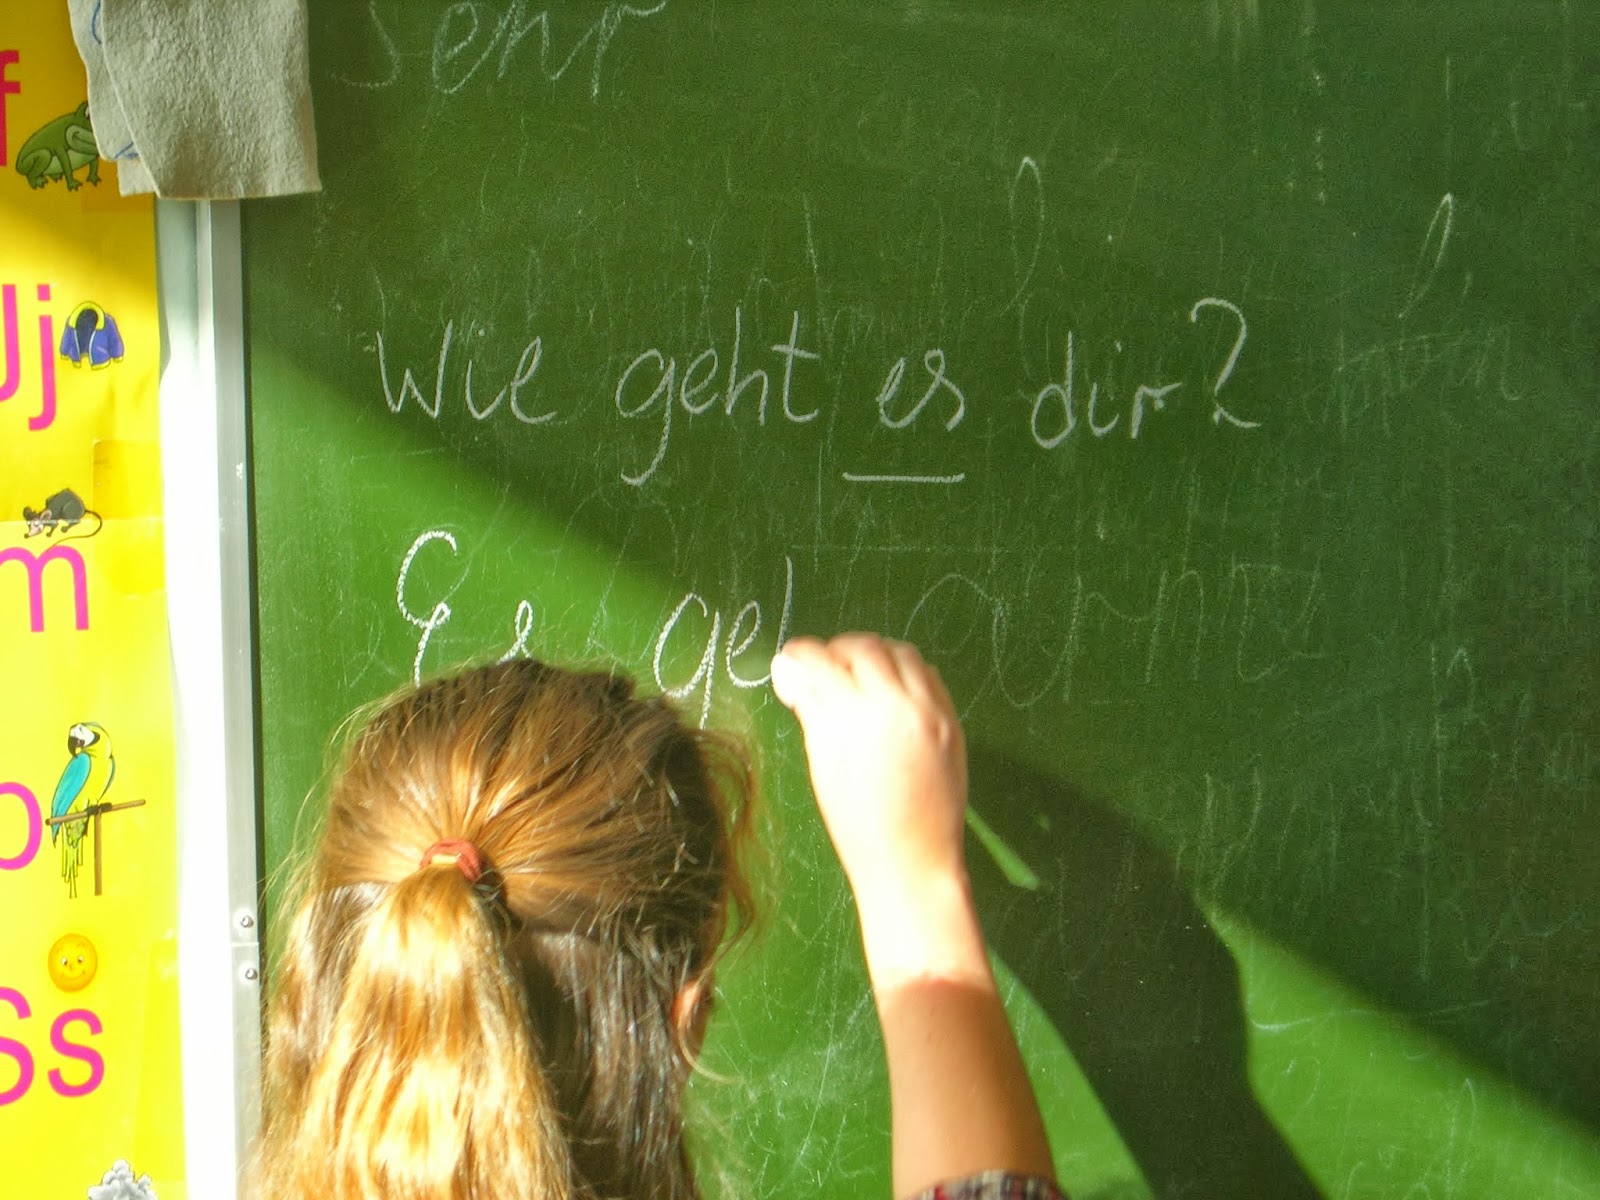 Sehr
Wie geht es dir?
Es geh
f
Jj
m
Ss